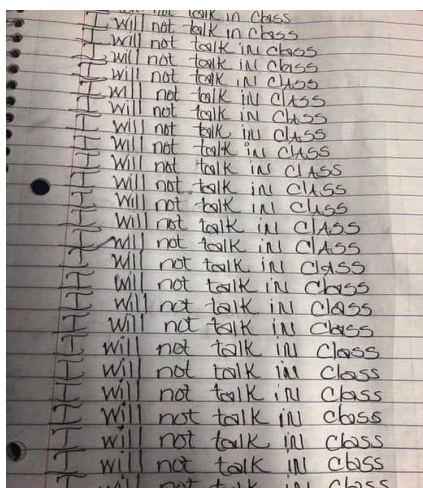 I will not talk in Class
I will not talk in Class
I will not talk IN class
I will not talk IN Class
I will not talk IN ClASS
I will not talk IN ClASS
I will not talk IN ClASS
I will not talk IN ClASS
I will not talk IN ClASS
I will not talk IN ClASS
I will not talk IN ClASS
I will not talk IN ClASS
I will not talk IN ClASS
I will not talk IN ClASS
I will not talk IN ClASS
I will not talk IN Class
I will not talk IN Class
I will not talk IN Class
I will not talk IN Class
I will not talk IN Class
I will not talk IN Class
I will not talk IN class
I will not talk IN class
I will not talk IN class
I will not talk IN class